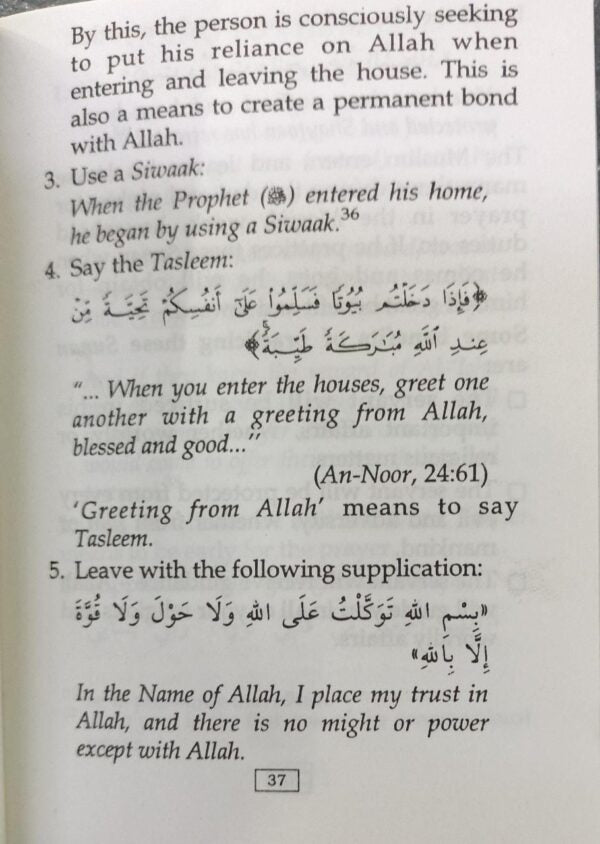 By this, the person is consciously seeking
to put his reliance on Allah when
entering and leaving the house. This is
also a means to create a permanent bond
with Allah.
3. Use a Siwaak:
When the Prophet (ﷺ) entered his home,
he began by using a Siwaak.36
4. Say the Tasleem:
﴿فَإِذَا دَخَلْتُم بُيُوتًا فَسَلِّمُوا۟ عَلَىٰٓ أَنفُسِكُمْ تَحِيَّةً مِّنْ
عِندِ ٱللَّهِ مُبَٰرَكَةً طَيِّبَةً ۚ﴾
“... When you enter the houses, greet one
another with a greeting from Allah,
blessed and good...”
(An-Noor, 24:61)
‘Greeting from Allah’ means to say
Tasleem.
5. Leave with the following supplication:
«بِسْمِ اللهِ تَوَكَّلْتُ عَلَى اللهِ وَلَا حَوْلَ وَلَا قُوَّةَ
إِلَّا بِاللهِ»
In the Name of Allah, I place my trust in
Allah, and there is no might or power
except with Allah.
37